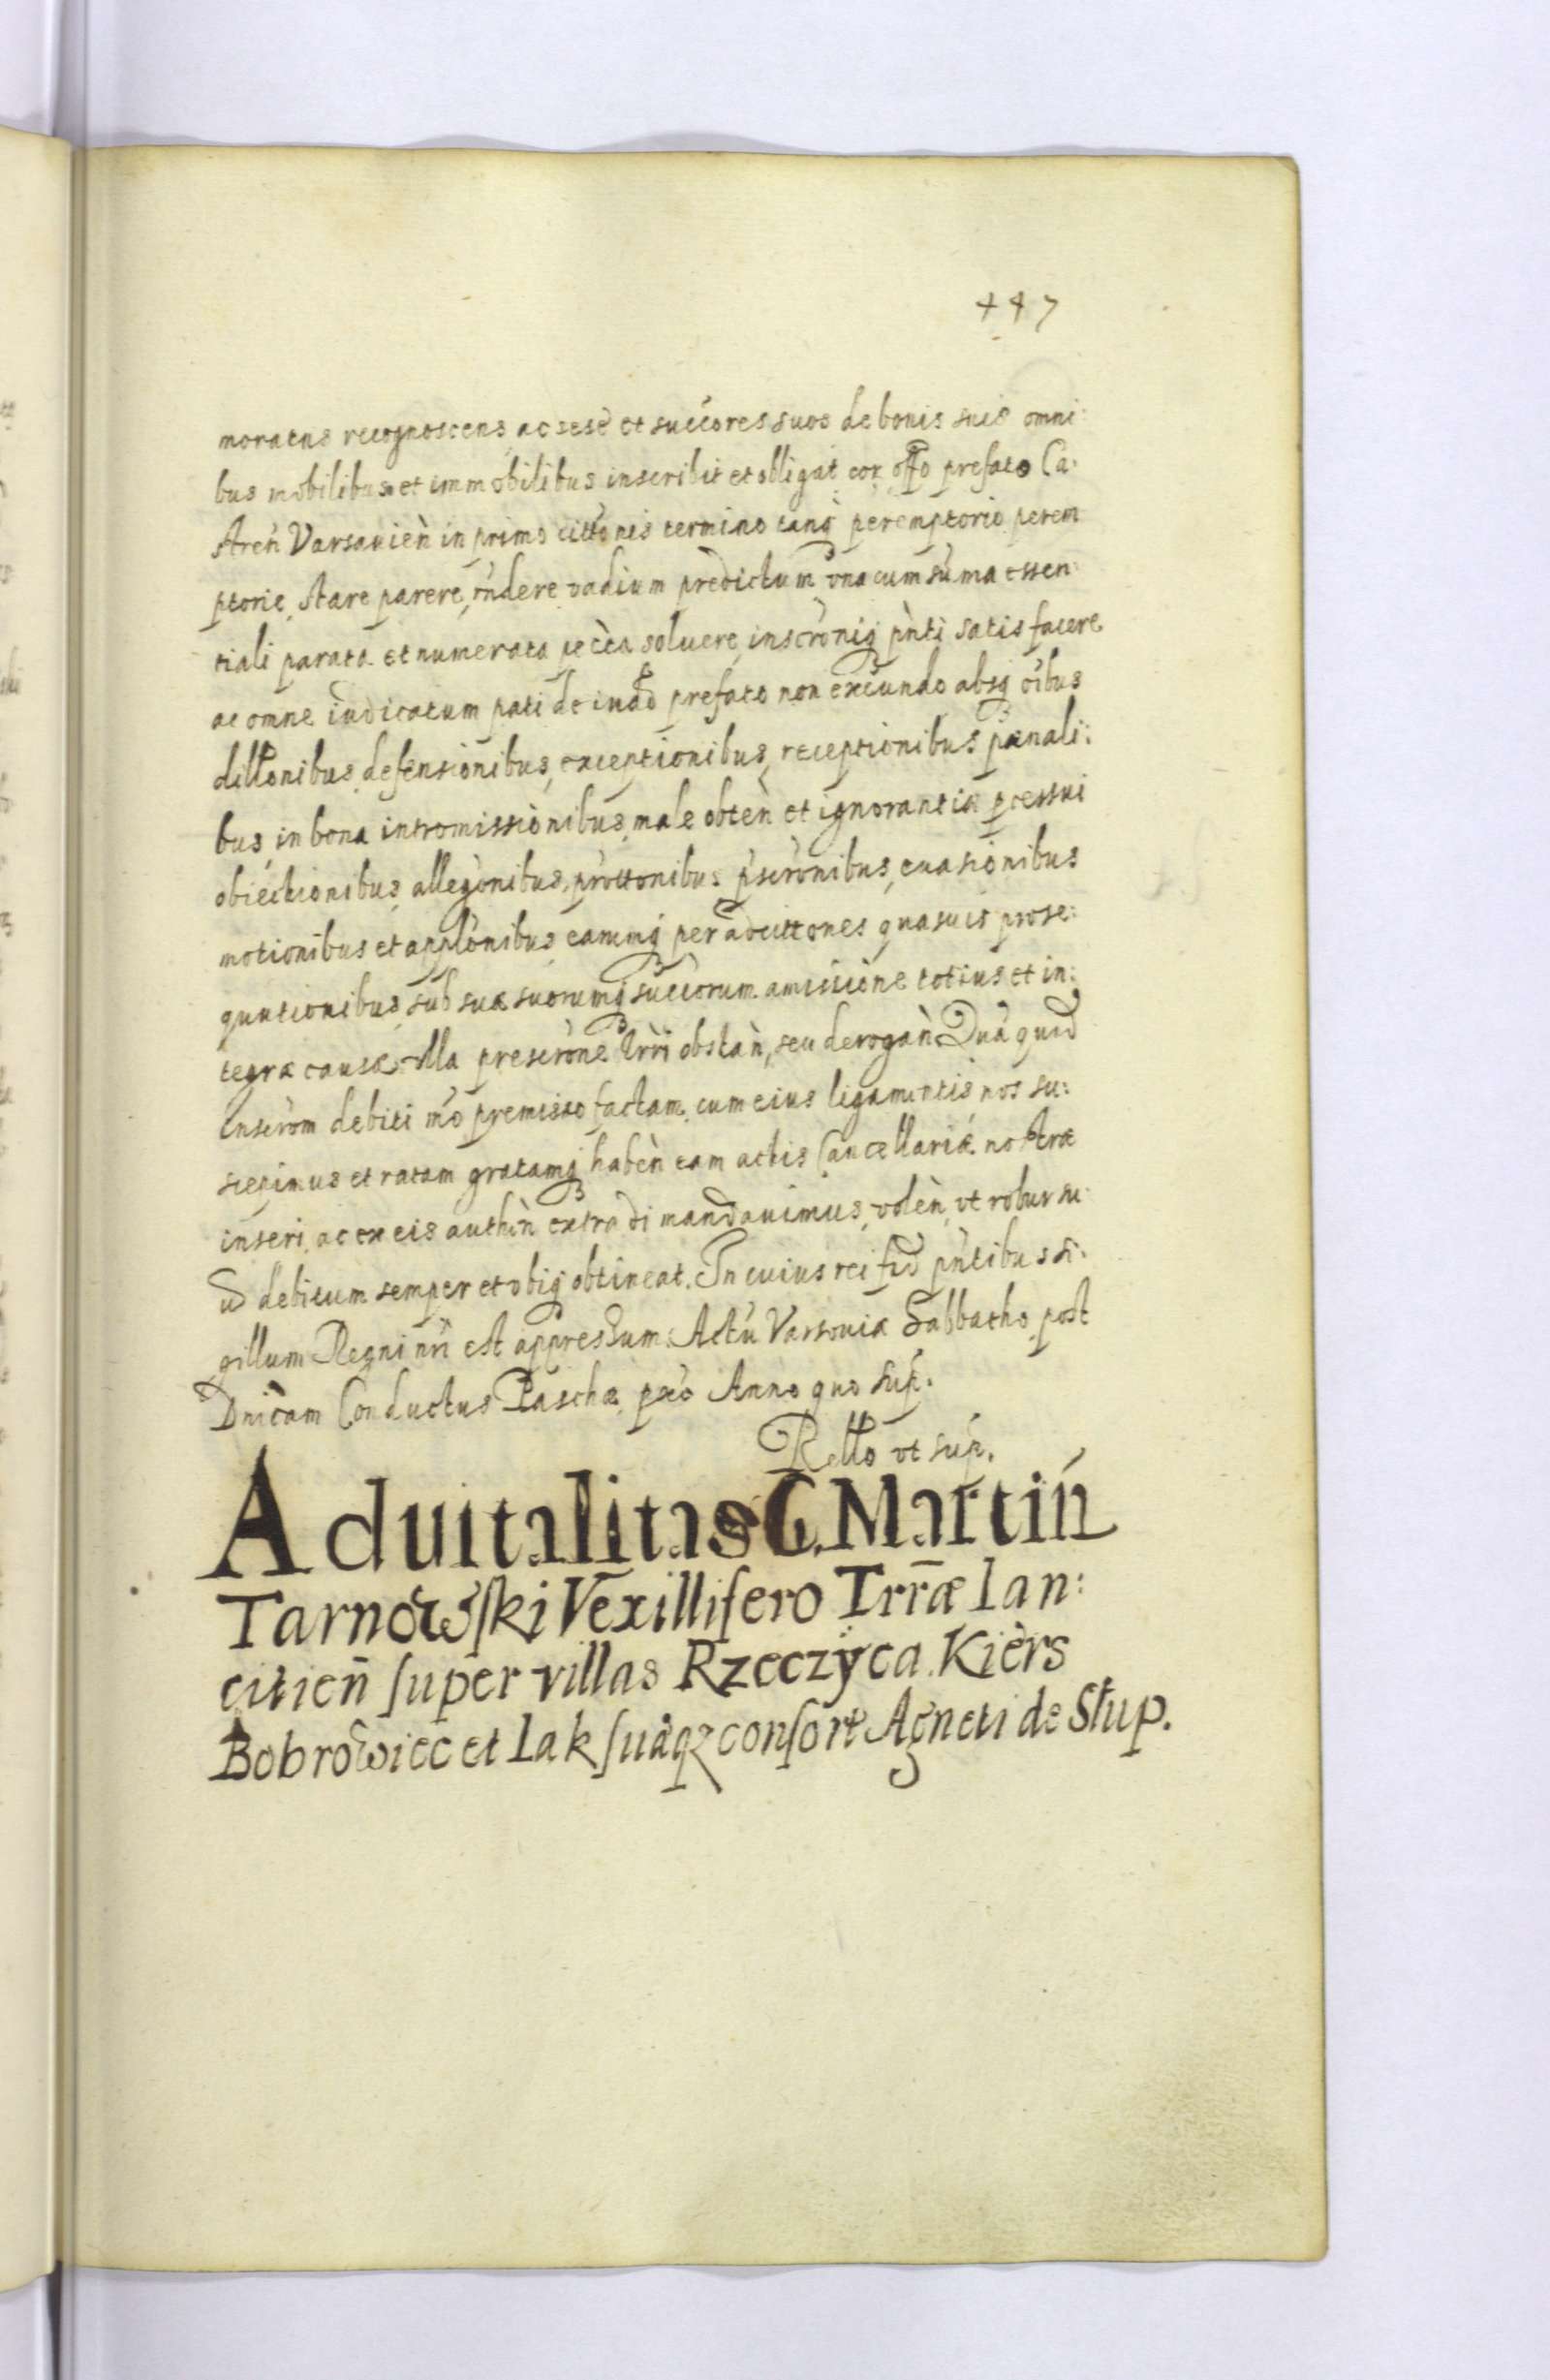 447
moratus recognoscens, ac sese et succores suos de bonis suis omni:
bus mobilibus et immobilibus inscribit et obligat cor. offo prefato Ca:
stren Varsavien in primo cittonis termino tanq̃ peremptorio perem
ptorie, stare parere, rñdere vadium predictum vna cum suma essen:
tiali parata et numerata pecca soluere, inscronig pñti satisfacere
ac omne iudicatum pati de iuað prefato non exeundo absq oibus
dillonibus, defensionibus, exceptionibus, receptionibus pænali:
bus, in bona intromissionibus, male obten et ignorantiæ pcessui
obiectionibus, allegonibus, prottonibus pscronibus, euasionibus
motionibus et applonibus, earumq per adcittones quasuis prose:
quutionibus, sub suæ suorumq succorum amissione totius et in:
tegræ causæ. Vlla prescrone trri obstañ, seu derogañ. Qua quid
inscrom debiti mo premisso factam, cum eius ligamentis nos su:
scepimus et ratam gratamq habeñ eam actis Cancellariæ nostræ
inseri, ac ex eis autheñ extradi mandauimus, voleñ, vt robur su:
ũ debitum semper et vbiq obtineat. In cuius rei fið pñtibus si:
gillum Regni nri est appressum. Actũ Varsouiæ Sabbatho post
Dnicam Conductus Paschæ pxo Anno quo sup.
Rello vt sup.
Aduitalitas G. Martiń
Tarnowſki Vexillifero Trr̄æ Lan:
citień ſuper villas Rzeczÿca. Kièrs
Bobrowiec et Lak ſuaq₃ conſort Agneti de Słup.